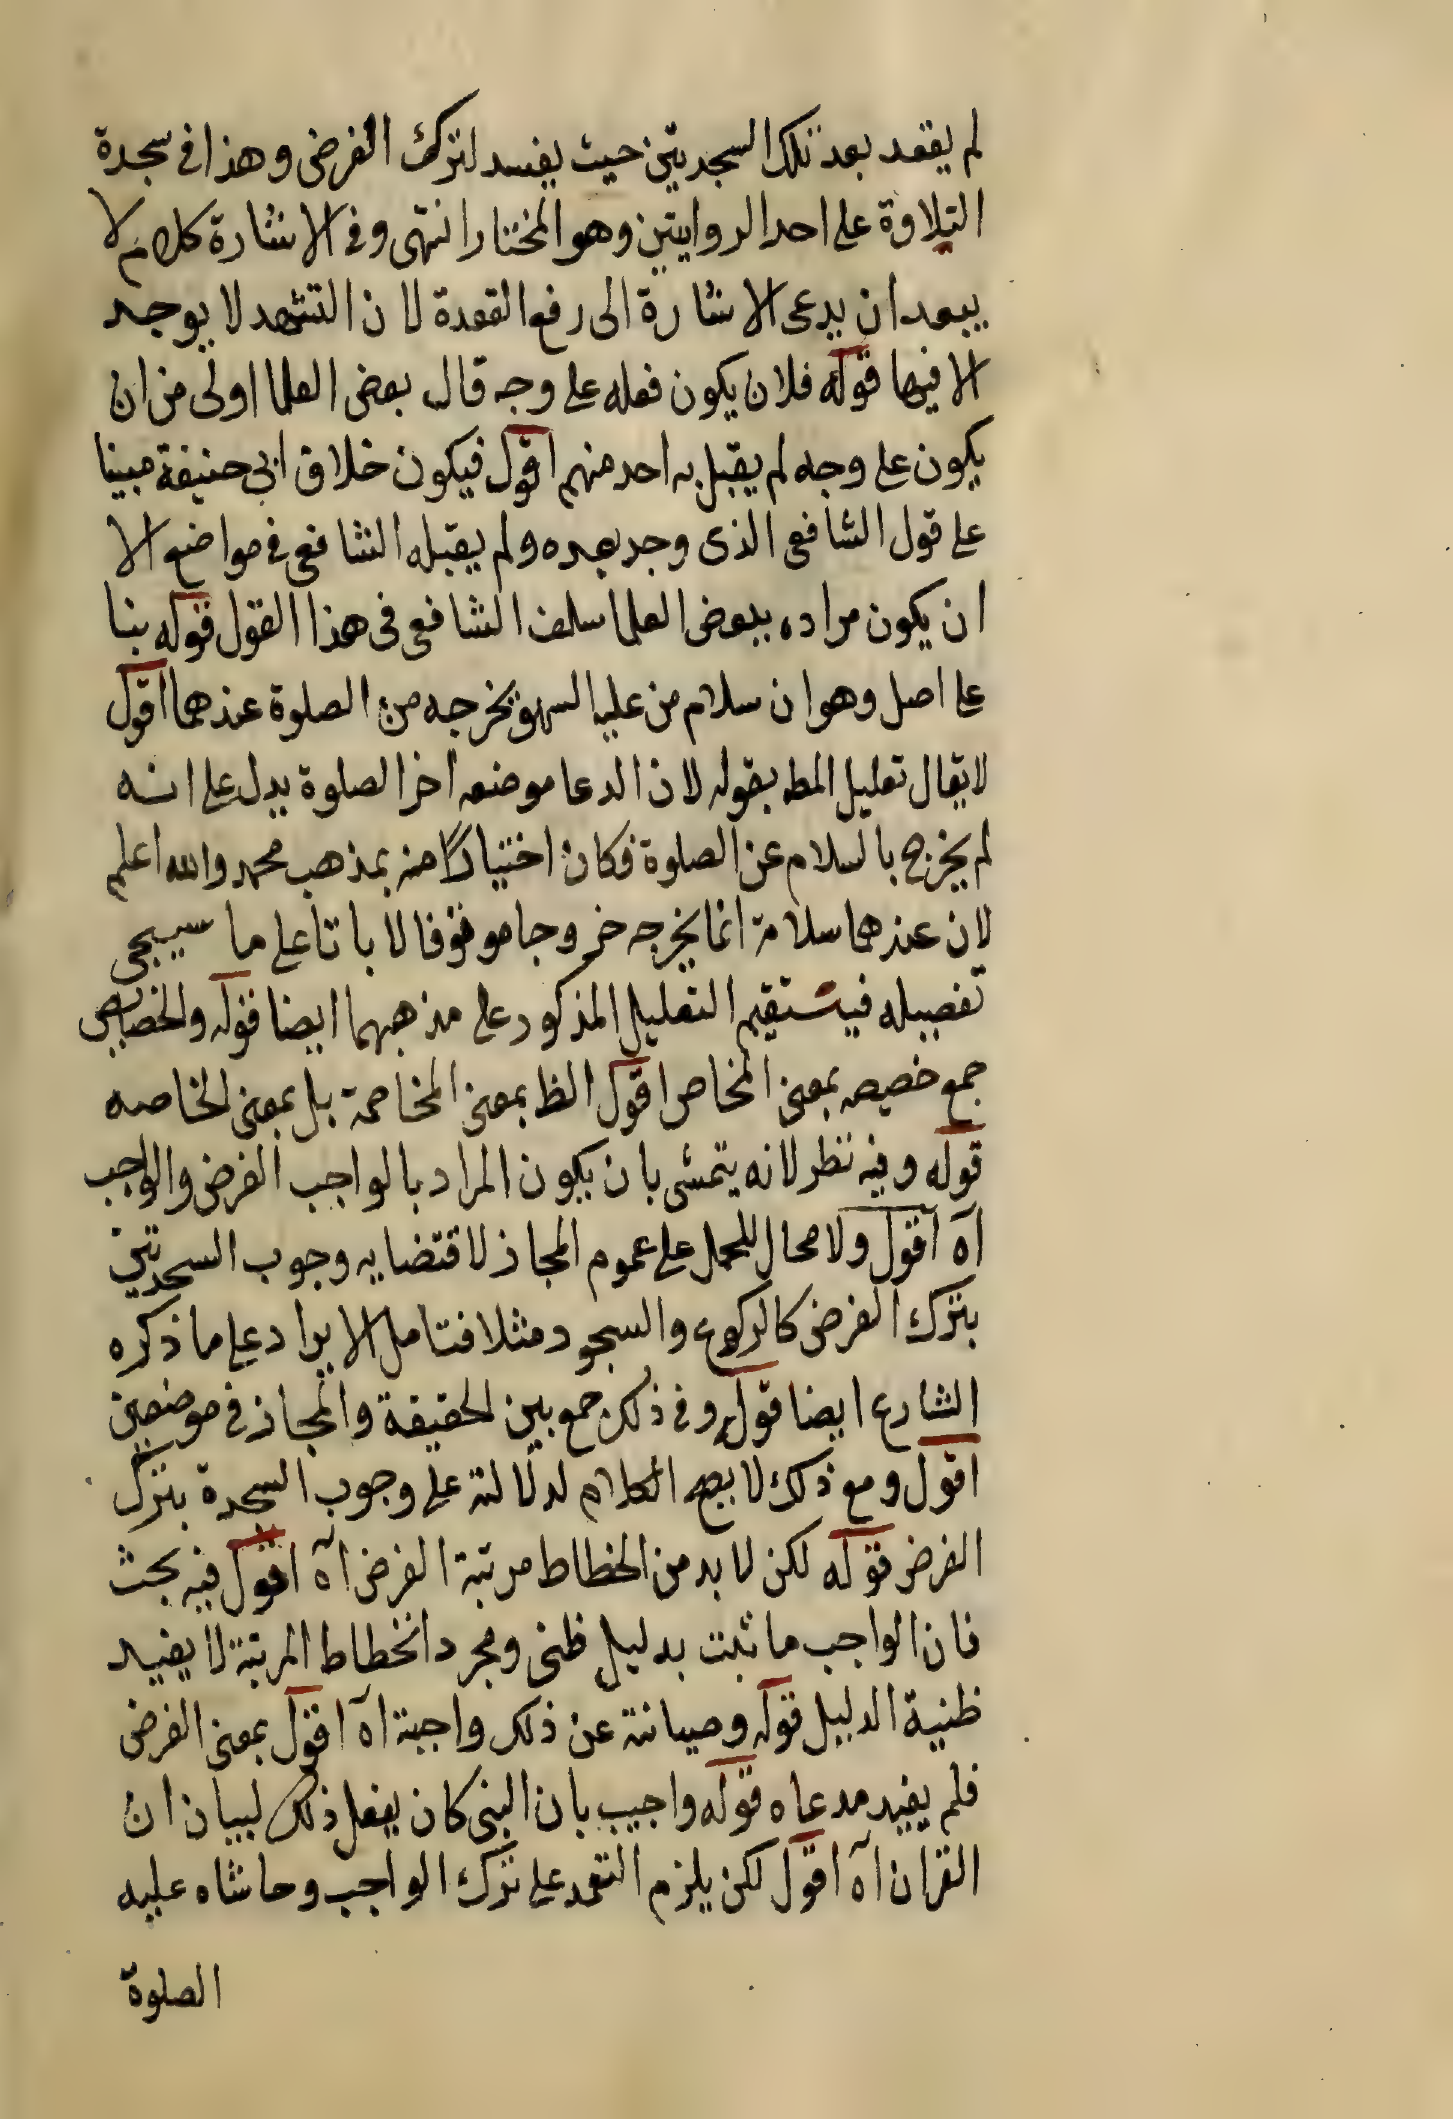 لم يقعد بعد تلك السجدتين حيث يفسد لترك الفرض وهذا في سجدة
التلاوة على احدا الروايتين وهو المختار انتهى وفي الاشارة كلام لا
يبعد ان يدعى الاشارة الى رفع القعدة لان التشهد لا يوجد
الا فيها قوله فلان يكون فعله على وجه قال بعض العلما اولى من ان
يكون على وجه لم يقبل به احد منهم اقول فيكون خلاف ابي حنيفة مبينا
على قول الشافعي الذى وجد بعده ولم يقبله الشافعي في مواضع الا
ان يكون مراده ببعض العلما سلف الشافعي في هذا القول قوله بنا
على اصل وهو ان سلام من عليه السهو يخرجه من الصلوة عندهما اقول
لا يقال تعليل المط بقوله لان الدعا موضعه اخر الصلوة يدل على انه
لم يخرج بالسلام عن الصلوة فكان اختيارا منه بمذهب محمد والله اعلم
لان عندهما سلامه انما يخرجه خروجا موقوفا لا باتا على ما سيجى
تفصيله فيستقيم التعليل المذكور على مذهبهما ايضا قوله والخصايص
جمع خصيصه بمعنى المخاص اقول الظ بمعنى المخاصمة بل بمعنى الخاصه
قوله وفيه نظر لانه يتمشى بان يكون المراد بالواجب الفرض والواجب
اه اقول ولا محال للحمل على عموم المجاز لاقتضايه وجوب السجدتين
بترك الفرض كالركوع والسجود مثلا فتامل الايراد على ما ذكره
الشارع ايضا قوله وفي ذلك جمع بين الحقيقة والمجاز في موضعين
اقول ومع ذلك لا يصح الكلام لدلالته على وجوب السجدة بترك
الفرض قوله لكن لا بد من انحطاط مرتبة الفرض اه اقول فيه بحث
فان الواجب ما ثبت بدليل ظني ومجرد انحطاط المرتبة لا يفيد
ظنية الدليل قوله وصيانته عن ذلك واجبة اه اقول بمعنى الفرض
فلم يفيد مدعاه قوله واجيب بان النبى كان يفعل ذلك لبيان ان
القران اه اقول لكن يلزم التعمد على ترك الواجب وحاشاه عليه
الصلوة